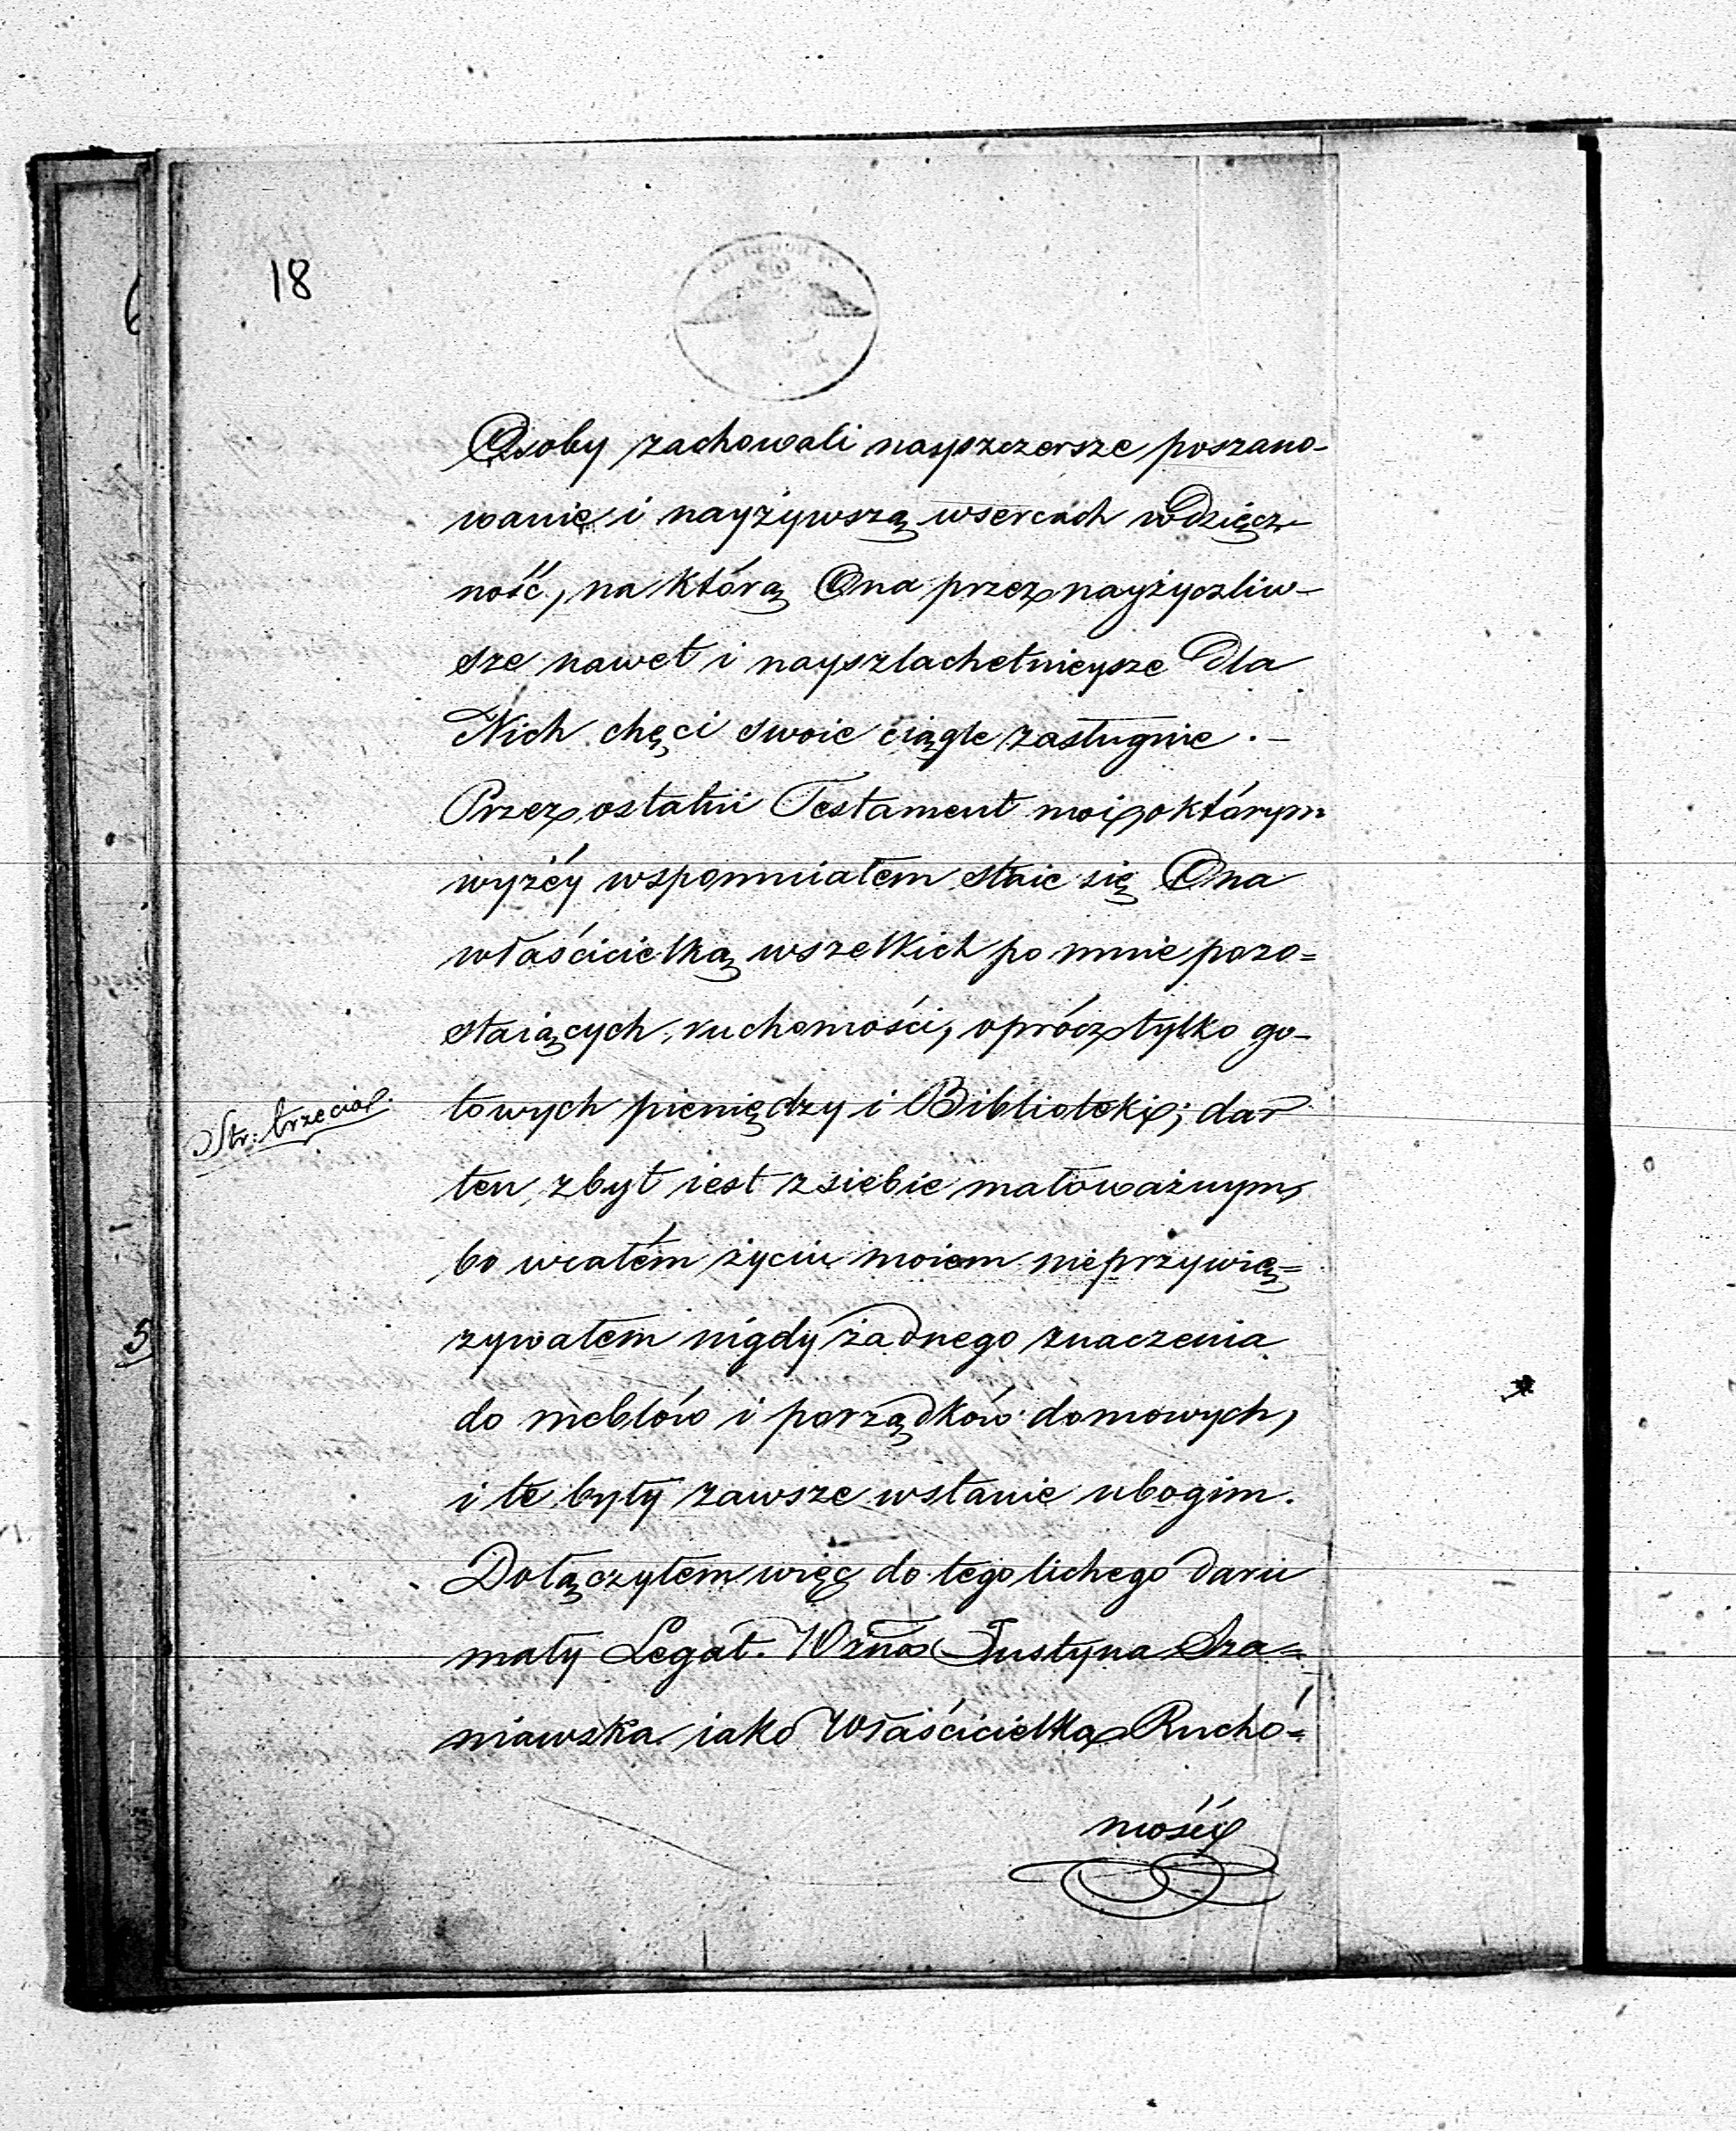 18
Osoby zachowali nayszczersze poszano-
wanie i nayżywszą wsercach wdzięcz-
ność, na którą Ona przez nayżyczliw-
sze nawet i nayszlachetnieysze dla
Nich chęci swoie ciągle zasługuie.-
Przez ostatni Testament moi, o którym
wyżéy wspomniałem staie się Ona
właścicielką wszelkich po mnie pozo=
staiących ruchomości, oprócz tylko go-
Str: trzecia.
towych pieniędzy i Biblioteki; dar
ten, zbyt iest z siebie małoważnym,
bo wcałém życiu moiem nieprzywią=
zywałem nigdy żadnego znaczenia
5
do meblów i porządków domowych,
i te były zawsze wstanie ubogim.
Dołączyłem więc do tego lichego daru
mały Legat. Wzna Justyna Sza=
niawska iako Właścicielka Rucho=
mości